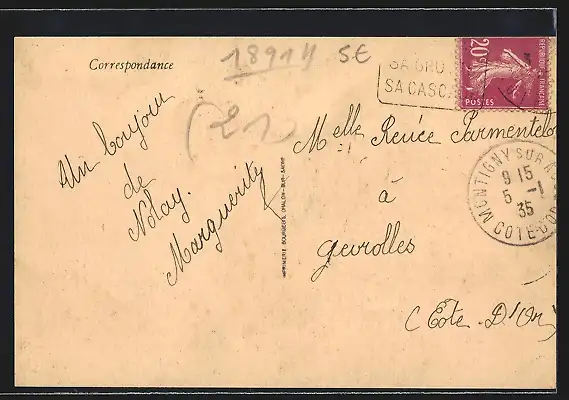 Correspondance
18911
5E
(21)
Un bonjour
de
Nolay.
Marguerite
IMPRIMERIE BOURGEOIS, CHALON-SUR-SAONE
SA GRO
SA CASC
20c
REPUBLIQUE FRANÇAISE
POSTES
Melle Renée Parmentelo
à
Gevrolles
(Côte-D'Or)
MONTIGNY SUR
9 15
5 -1
35
COTE-D'OR